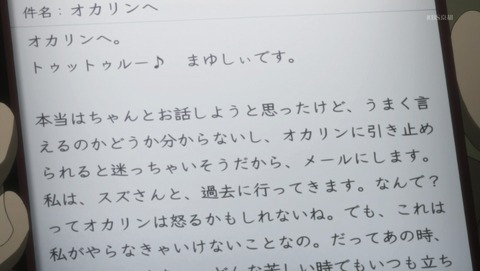 件名：オカリンへ
オカリンへ。
トゥットゥルー♪　まゆしぃです。
本当はちゃんとお話しようと思ったけど、うまく言
えるのかどうか分からないし、オカリンに引き止め
られると迷っちゃいそうだから、メールにします。
私は、スズさんと、過去に行ってきます。なんで？
ってオカリンは怒るかもしれないね。でも、これは
私がやらなきゃいけないことなの。だってあの時、
どんな苦しい時でもいつも立ち